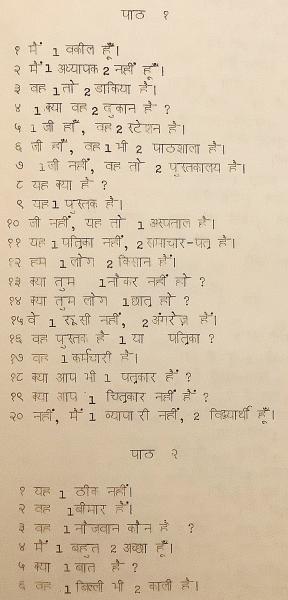 पाठ १
१ मैं 1 वकील हूँ।
२ मैं 1 अध्यापक 2 नहीं हूँ।
३ वह 1 तो 2 डाकिया है।
४ 1 क्या वह 2 दुकान है ?
५ 1 जी हाँ, वह 2 स्टेशन है।
६ जी हाँ, वह 1 भी 2 पाठशाला है।
७ 1 जी नहीं, वह तो 2 पुस्तकालय है।
८ यह क्या है ?
९ यह 1 पुस्तक है।
१० जी नहीं, यह तो 1 अस्पताल है।
११ यह 1 पत्रिका नहीं, 2 समाचार-पत्र है।
१२ हम 1 लोग 2 किसान हैं।
१३ क्या तुम 1 नौकर नहीं हो ?
१४ क्या तुम लोग 1 छात्र हो ?
१५ वे 1 रूसी नहीं, 2 अंगरेज़ हैं।
१६ वह पुस्तक है 1 या पत्रिका ?
१७ वह 1 कर्मचारी है।
१८ क्या आप भी 1 पत्रकार हैं ?
१९ क्या आप 1 चित्रकार नहीं हैं ?
२० नहीं, मैं 1 व्यापारी नहीं, 2 विद्यार्थी हूँ।
पाठ २
१ यह 1 ठीक नहीं।
२ वह 1 बीमार है।
३ वह 1 नौजवान कौन है ?
४ मैं 1 बहुत 2 अच्छा हूँ।
५ क्या 1 बात है ?
६ वह 1 बिल्ली भी 2 काली है।